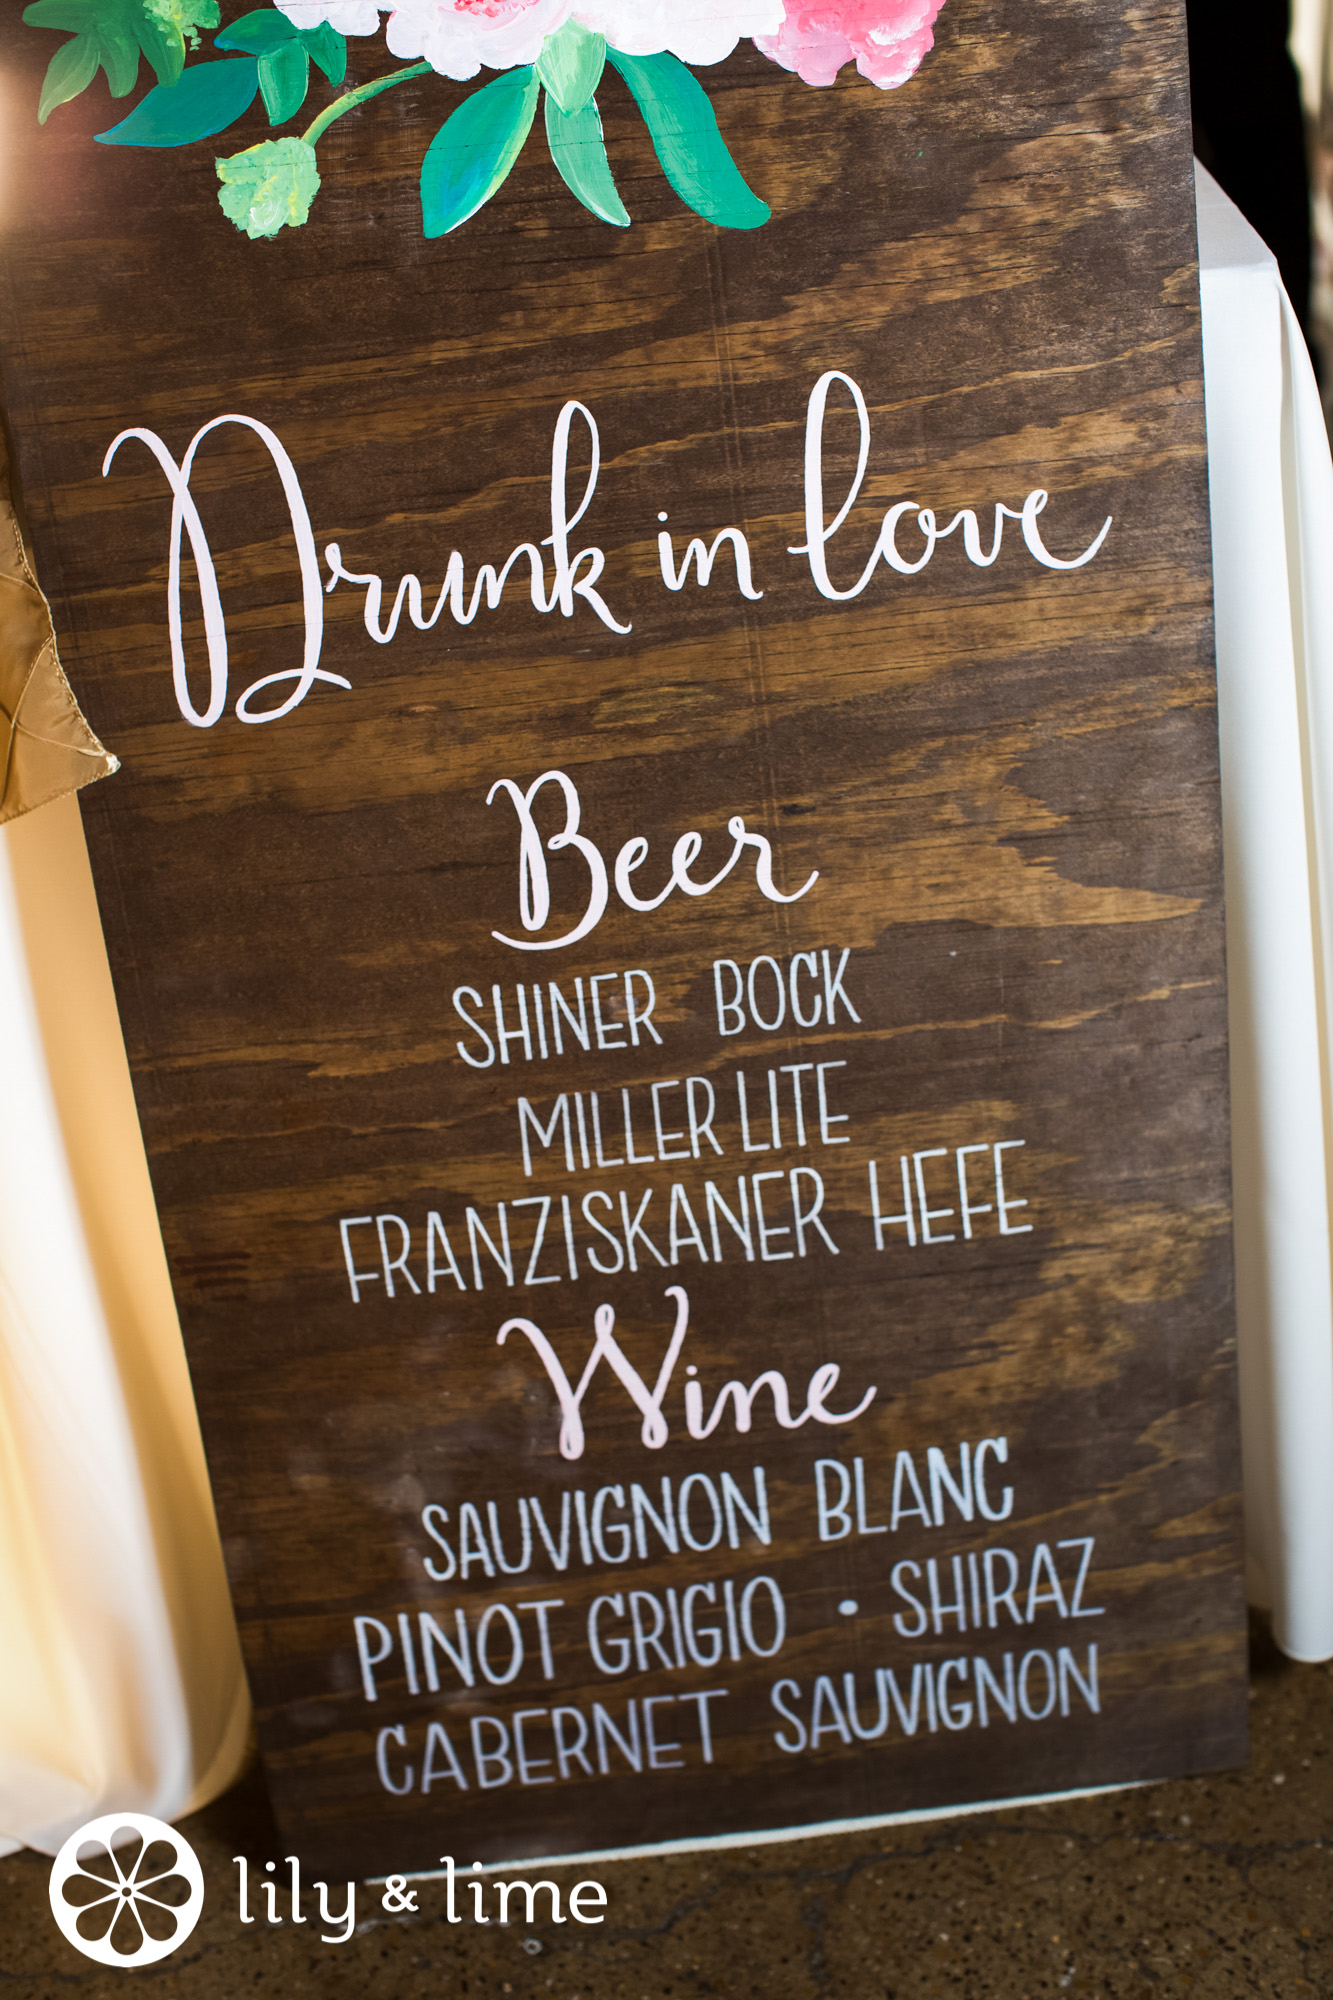 Drunk in love
Beer
SHINER BOCK
MILLER LITE
FRANZISKANER HEFE
Wine
SAUVIGNON BLANC
PINOT GRIGIO • SHIRAZ
CABERNET SAUVIGNON
lily & lime